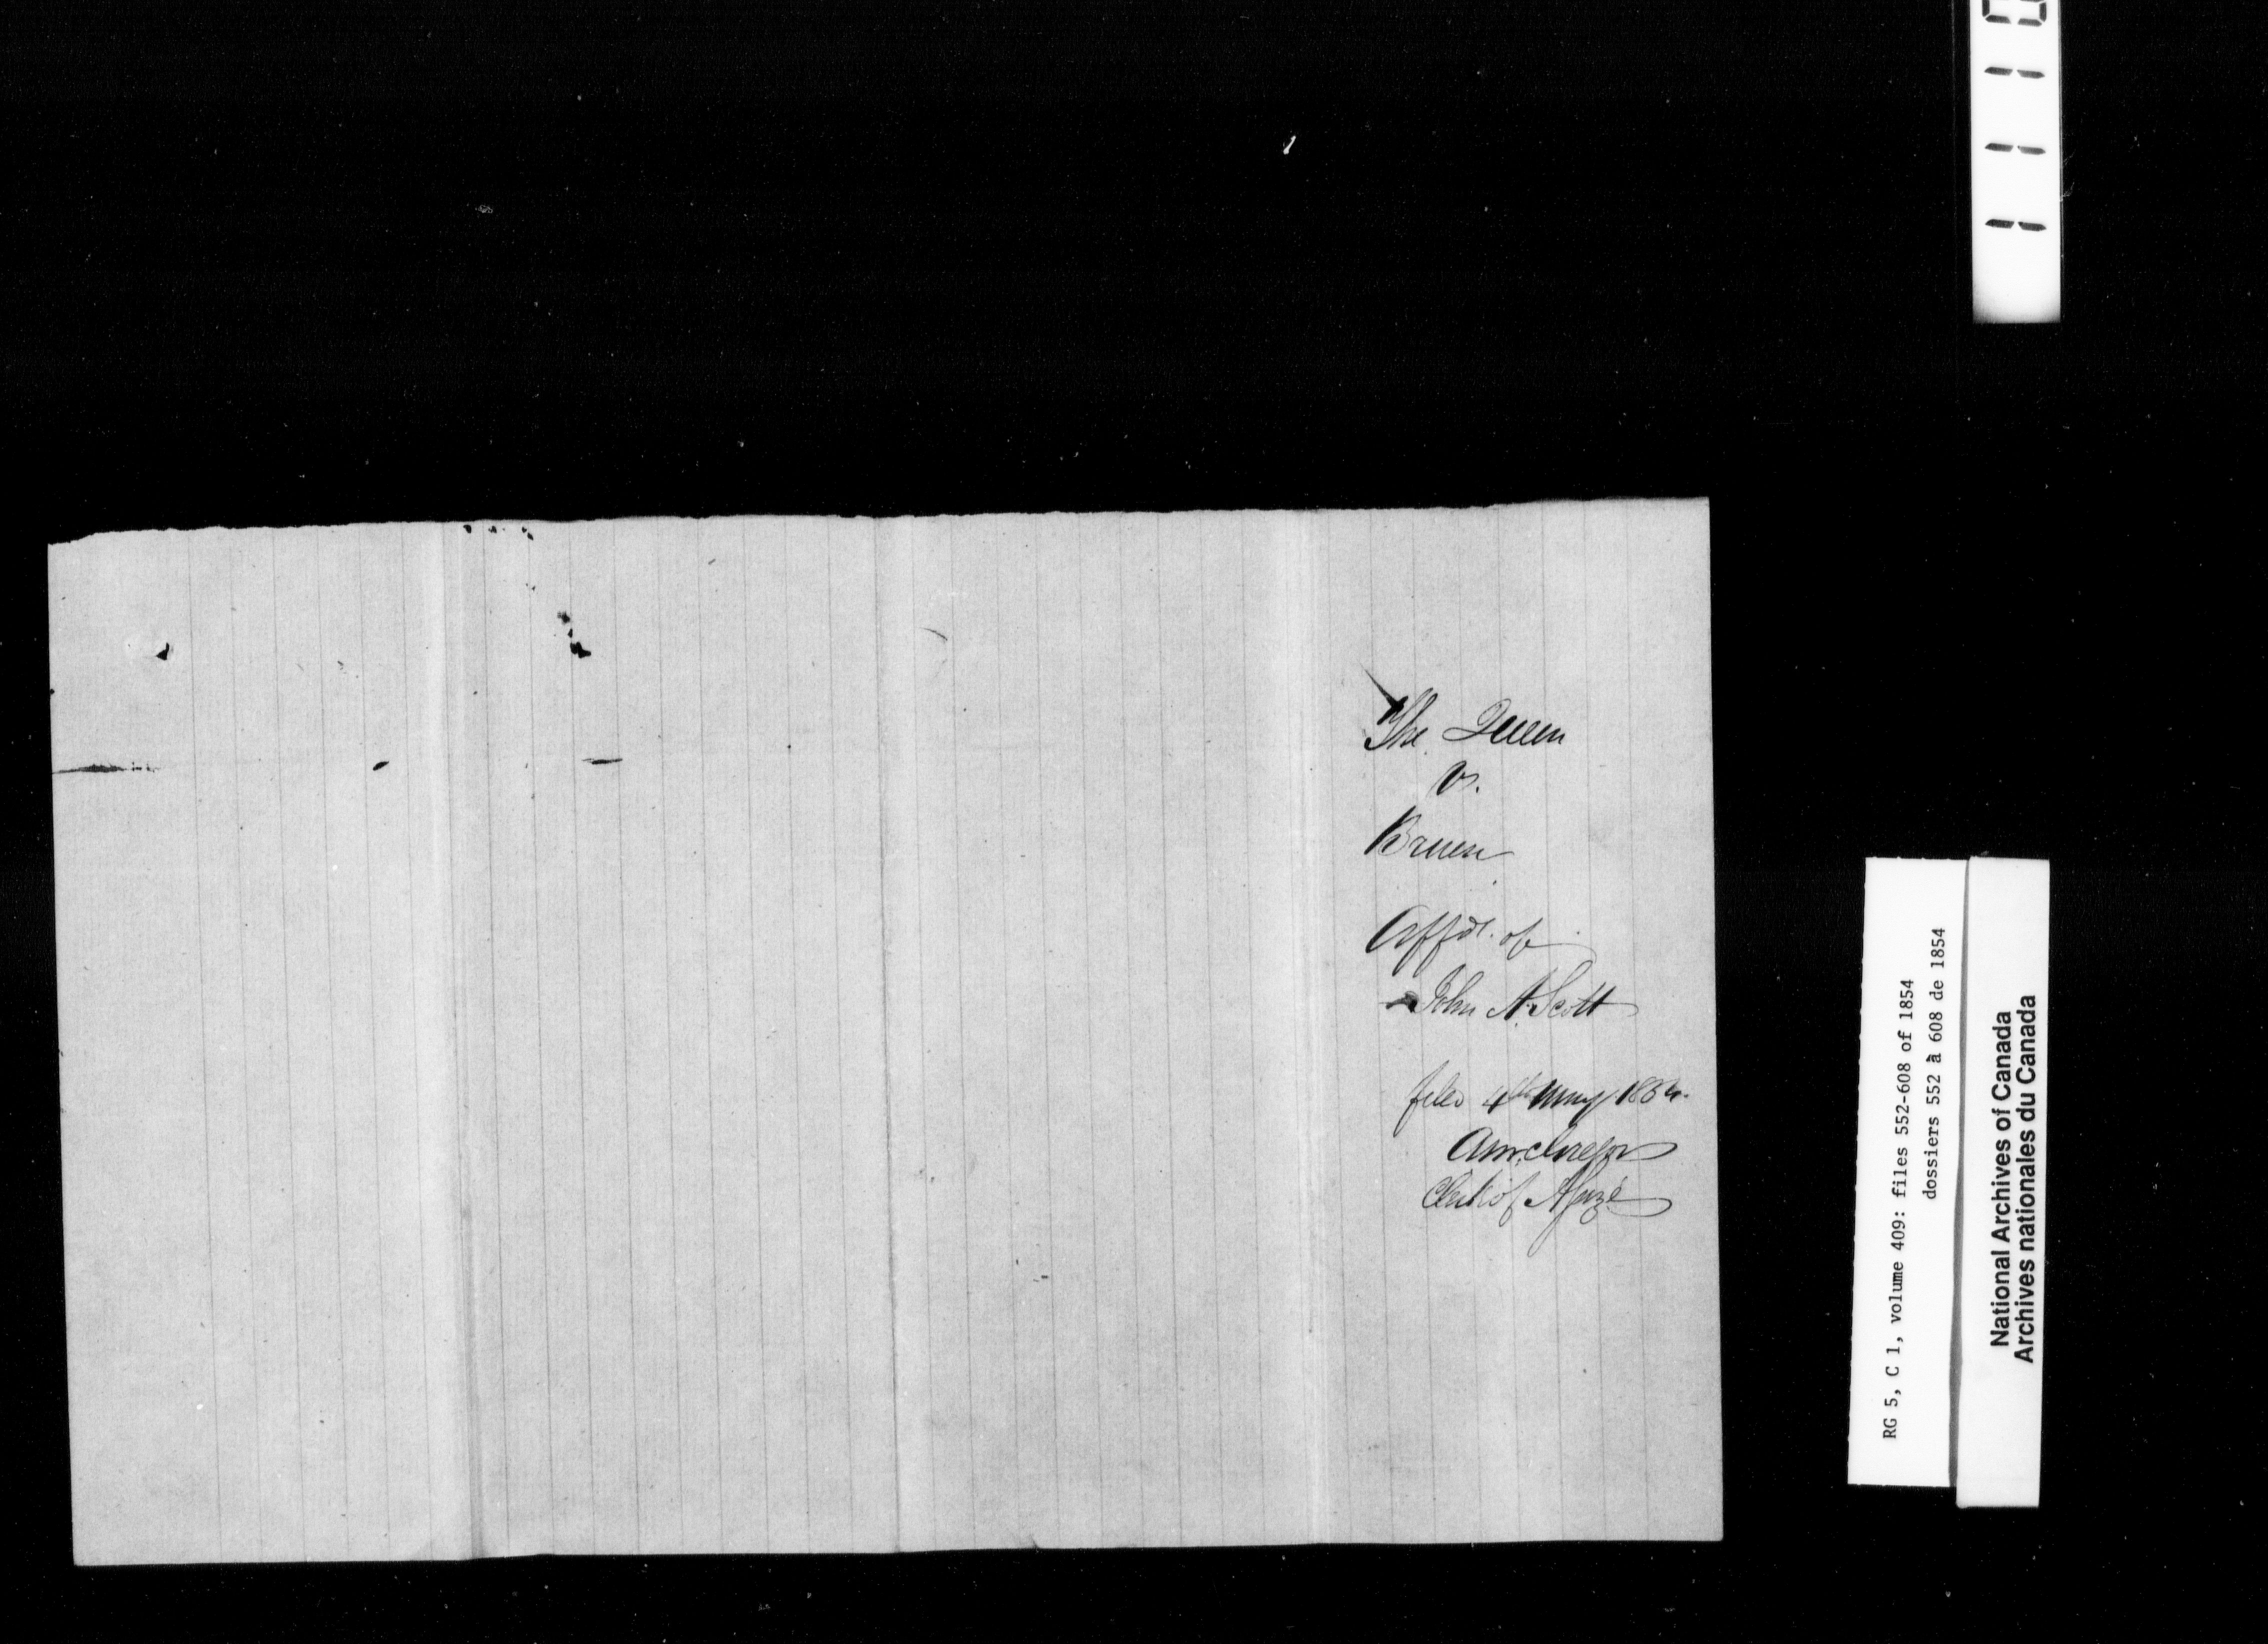 The Queen
vs.
Bruen
Affdt. of
John A. Scott
filed 4th May 1854.
Clerk of Assize
RG 5, C 1, volume 409: files 552-608 of 1854
dossiers 552 à 608 de 1854
National Archives of Canada
Archives nationales du Canada